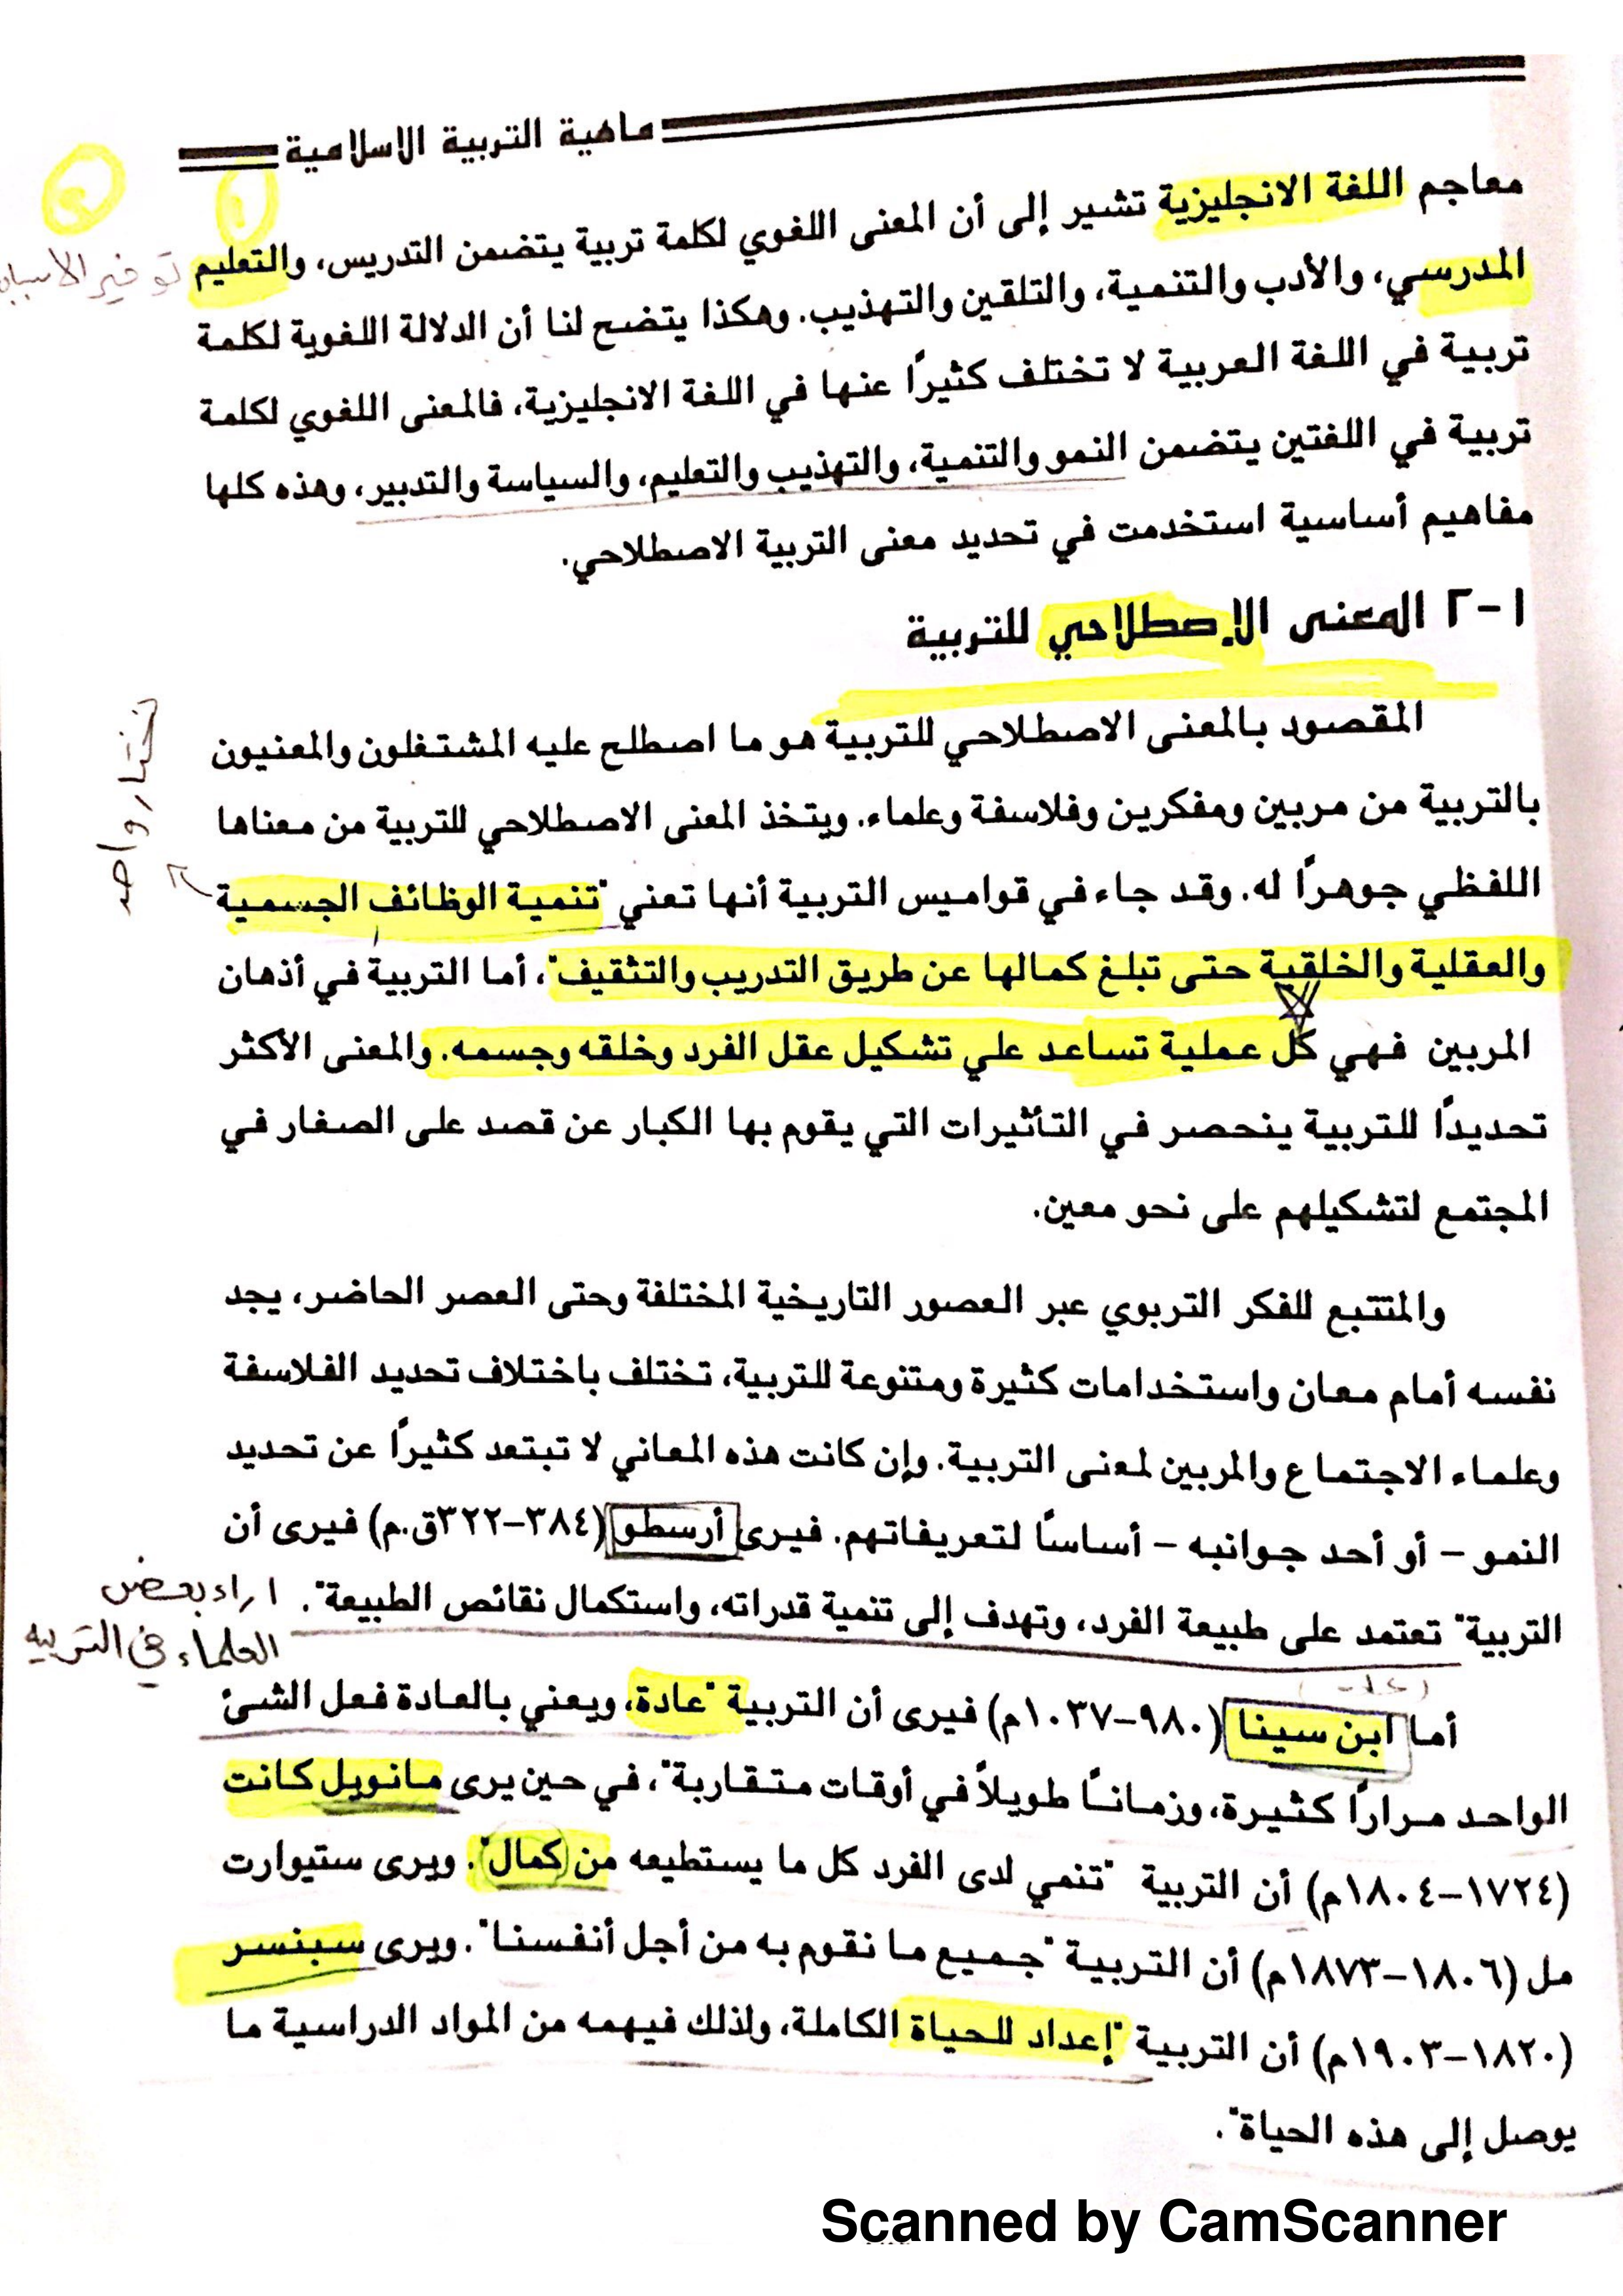 ماهية التربية الاسلامية
معاجم اللغة الانجليزية تشير إلى أن المعنى اللغوي لكلمة تربية يتضمن التدريس، والتعليم
توفير الاسباب
المدرسي، والأدب والتنمية، والتلقين والتهذيب. وهكذا يتضح لنا أن الدلالة اللغوية لكلمة
تربية في اللغة العربية لا تختلف كثيرًا عنها في اللغة الانجليزية، فالمعنى اللغوي لكلمة
تربية في اللغتين يتضمن النمو والتنمية، والتهذيب والتعليم، والسياسة والتدبير، وهذه كلها
مفاهيم أساسية استخدمت في تحديد معنى التربية الاصطلاحي.
١-٢ المعنى الإصطلاحي للتربية
المقصود بالمعنى الاصطلاحي للتربية هو ما اصطلح عليه المشتغلون والمعنيون
بالتربية من مربين ومفكرين وفلاسفة وعلماء. ويتخذ المعنى الاصطلاحي للتربية من معناها
نختار واحد
اللفظي جوهرًا له. وقد جاء في قواميس التربية أنها تعني "تنمية الوظائف الجسمية
والعقلية والخلقية حتى تبلغ كمالها عن طريق التدريب والتثقيف"، أما التربية في أذهان
المربين فهي كل عملية تساعد علي تشكيل عقل الفرد وخلقه وجسمه. والمعنى الأكثر
تحديدًا للتربية ينحصر في التأثيرات التي يقوم بها الكبار عن قصد على الصغار في
المجتمع لتشكيلهم على نحو معين.
والمتتبع للفكر التربوي عبر العصور التاريخية المختلفة وحتى العصر الحاضر، يجد
نفسه أمام معان واستخدامات كثيرة ومتنوعة للتربية، تختلف باختلاف تحديد الفلاسفة
وعلماء الاجتماع والمربين لمعنى التربية. وإن كانت هذه المعاني لا تبتعد كثيرًا عن تحديد
النمو – أو أحد جوانبه – أساسًا لتعريفاتهم. فيرى أرسطو (٣٨٤–٣٢٢ق.م) فيرى أن
التربية" تعتمد على طبيعة الفرد، وتهدف إلى تنمية قدراته، واستكمال نقائص الطبيعة".
اراء بعض
العلماء في التربيه
أما ابن سينا (٩٨٠–١٠٣٧م) فيرى أن التربية "عادة، ويعني بالعادة فعل الشئ
الواحد مرارًا كثيرة، وزمانًا طويلاً في أوقات متقاربة"، في حين يرى مانويل كانت
(١٧٢٤–١٨٠٤م) أن التربية "تنمي لدى الفرد كل ما يستطيعه من كمال". ويرى ستيوارت
مل (١٨٠٦–١٨٧٣م) أن التربية "جميع ما نقوم به من أجل أنفسنا". ويرى سبنسر
(١٨٢٠–١٩٠٣م) أن التربية "إعداد للحياة الكاملة، ولذلك فيهمه من المواد الدراسية ما
يوصل إلى هذه الحياة".
Scanned by CamScanner